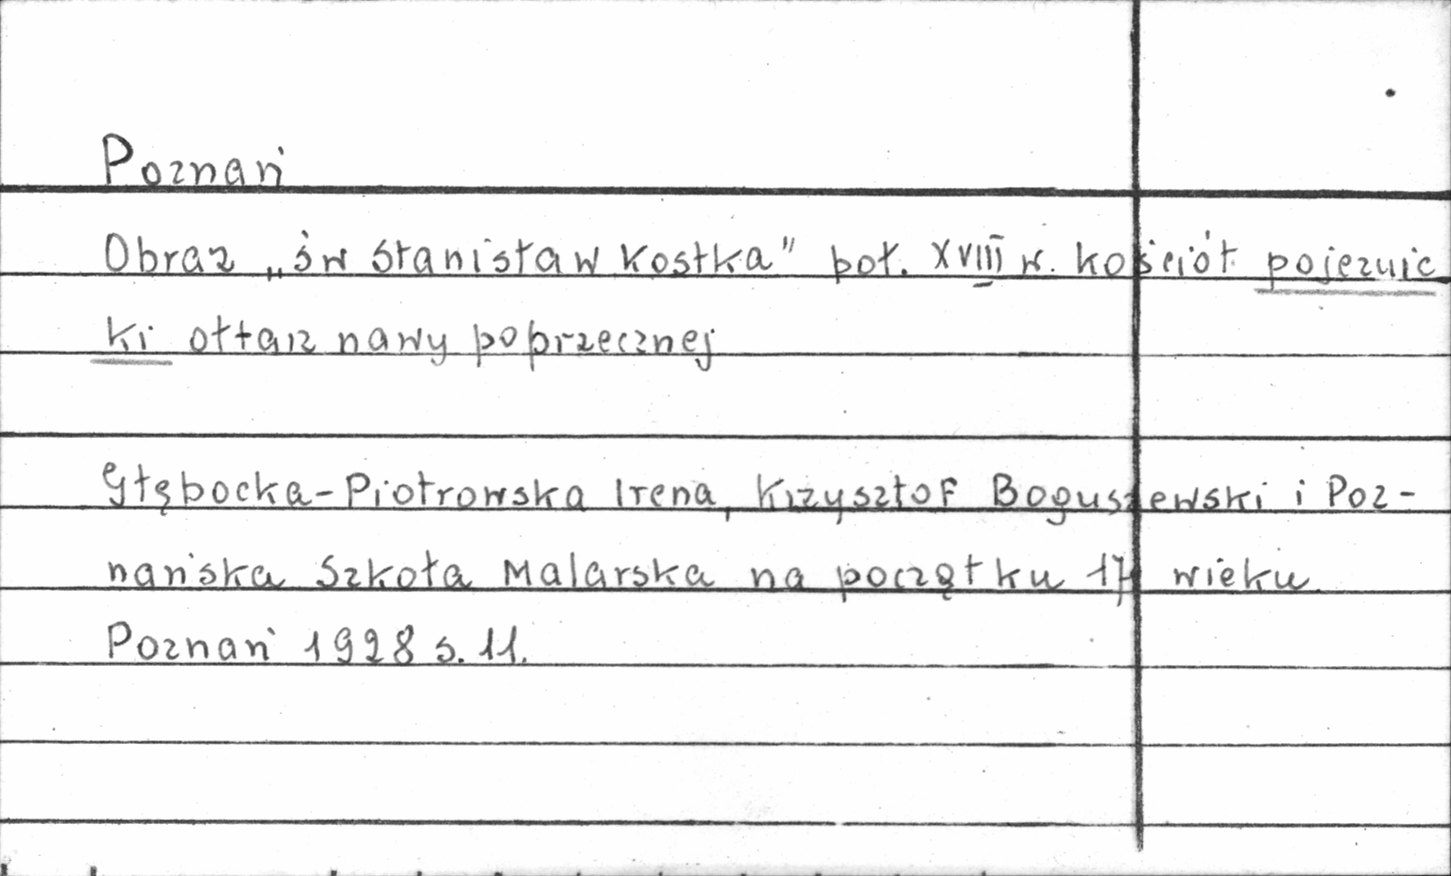 Poznań
Obraz „św Stanisław Kostka" poł. XVIII w. kościół pojezuic
ki ołtarz nawy poprzecznej
Głębocka-Piotrowska Irena, Krzysztof Boguszewski i Poz-
nańska Szkoła Malarska na początku 17 wieku.
Poznań 1928 s. 11.